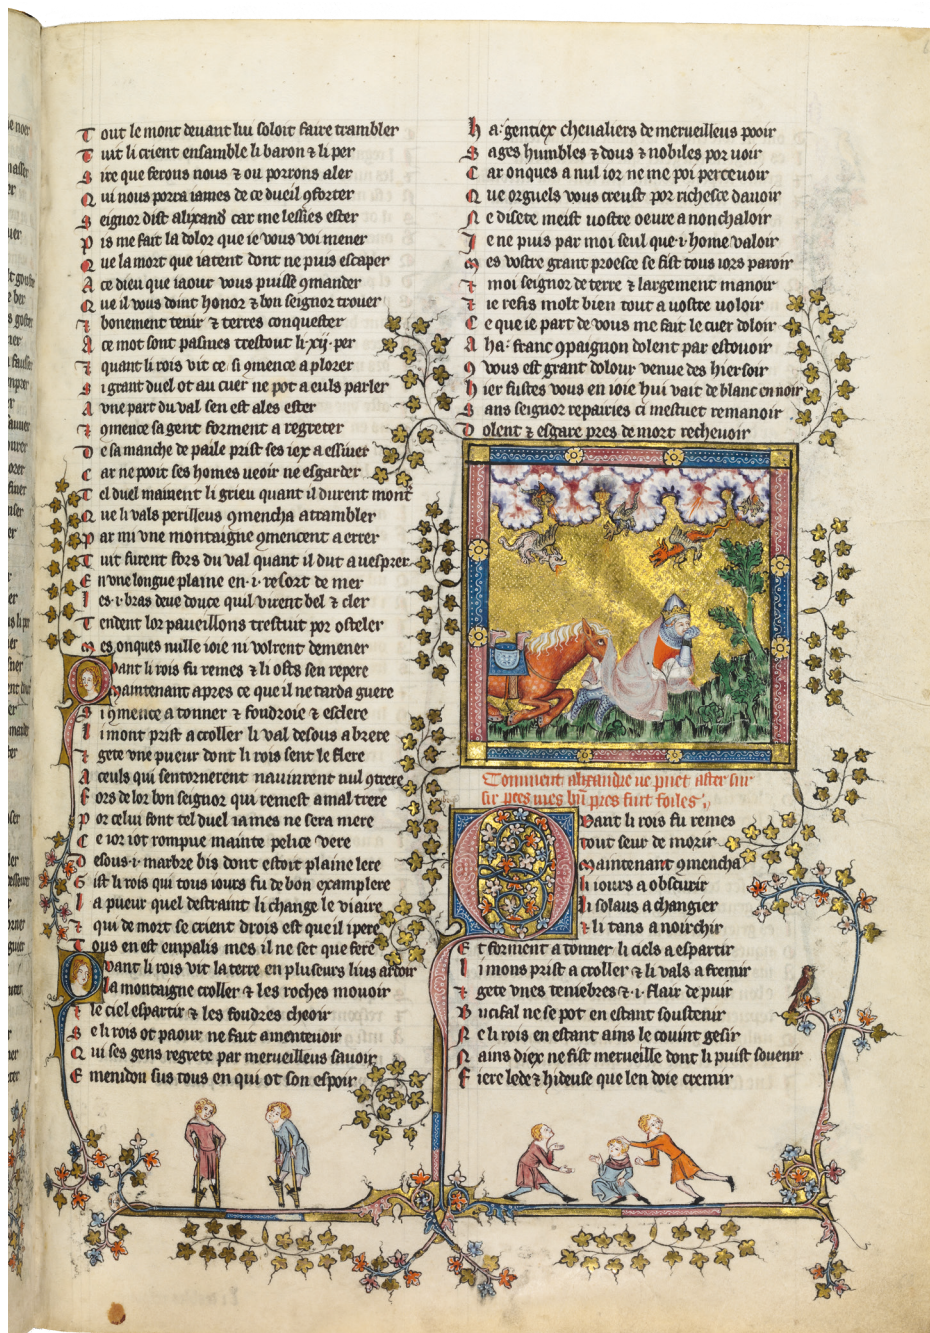 Tout le mont deuant lui soloit faire trambler
Tuit li crient ensamble li baron ⁊ li per
Sire que ferons nous ⁊ ou porrons aler
Qui nous porra iames de ce dueil ꝯforter
Seignor dist alixand car me lessies ester
Pis me fait la dolor que ie vous voi mener
Que la mort que iatent dont ne puis escaper
A ce dieu que iaour vous puisse ꝯmander
Que il vous doint honor ⁊ bon seignor trouer
⁊ bonement tenir ⁊ terres conquester
A ce mot sont pasmes trestout li·xij·per
⁊ quant li rois vit ce si ꝯmence a plorer
Si grant duel ot au cuer ne pot a euls parler
A vne part du val sen est ales ester
⁊ ꝯmence sa gent forment a regreter
De sa manche de paile prist ses iex a essuier
Car ne pooit ses homes ueoir ne esgarder
Tel duel mainent li grieu quant il durent mont
Que li vals perilleus ꝯmencha a trambler
Par mi vne montaigne ꝯmencent a errer
Tuit furent fors du val quant il dut auesprer
En vne longue plaine en·i·resort de mer
Les·i·bras deue douce quil virent bel ⁊ cler
Tendent lor paueillons trestuit por osteler
Mes onques nulle ioie ni volrent demener
Quant li rois fu remes ⁊ li ostes sen repere
Maintenant apres ce que il ne tarda guere
Si ꝯmence a tonner ⁊ foudroie ⁊ esclere
Li mont prist a croller li val desous a brere
⁊ gete vne pueur dont li rois sent le flere
A ceuls qui sentornerent nauinrent nul ꝯtrere
Fors de lor bon seignor qui remest a mal trere
Por celui font tel duel ia mes ne sera mere
Ce ior iot rompue mainte pelice vere
Desous·i·marbre bis dont estoit plaine lere
Gist li rois qui tous iours fu de bon examplere
La pueur quel destraint li change le viaire
⁊ qui de mort se crient drois est que il ipere
Tous en est empalis mes il ne set que fere
Quant li rois vit la terre en pluseurs lius ardoir
La montaigne croller ⁊ les roches mouoir
⁊ le ciel espartir ⁊ les foudres cheoir
Se li rois ot paour ne fait amenteuoir
Qui ses gens regrete par merueilleus sauoir
Emenidon sus tous en qui ot son espoir
Ha·gentiex cheualiers de merueilleus pooir
Sages humbles ⁊ dous ⁊ nobiles por uoir
Car onques a nul ior ne me poi perceuoir
Que orguels vous creust por richesce dauoir
Ne disete meist uostre oeure a nonchaloir
Je ne puis par moi seul que·i·home valoir
Mes vostre grant proesce se fist tous iors paroir
⁊ moi seignor de terre ⁊ largement manoir
⁊ ie refis molt bien tout a uostre uoloir
Ce que ie part de vous me fait le cuer doloir
Aha·franc ꝯpaignon dolent par estouoir
Ꝯ vous est grant dolour venue des hier soir
Hier fustes vous en ioie hui vait de blanc en noir
Sans seignor repairies ci mestuet remanoir
Dolent ⁊ esgare pres de mort recheuoir
Comment alixandre
Quant li rois fu remes
tout seur de morir
Maintenant ꝯmencha
li iours a obscurir
li solaus a changier
⁊ li tans a noirchir
Et forment a tonner li ciels a espartir
Li mons prist a croller ⁊ li vals a fremir
⁊ gete vnes teniebres ⁊·i·flair de puir
Bucifal ne se pot en estant soustenir
Ne li rois en estant ains le couint gesir
Nains diex ne fist merueille dont li puist souenir
Fiere lede ⁊ hideuse que len doie cremir